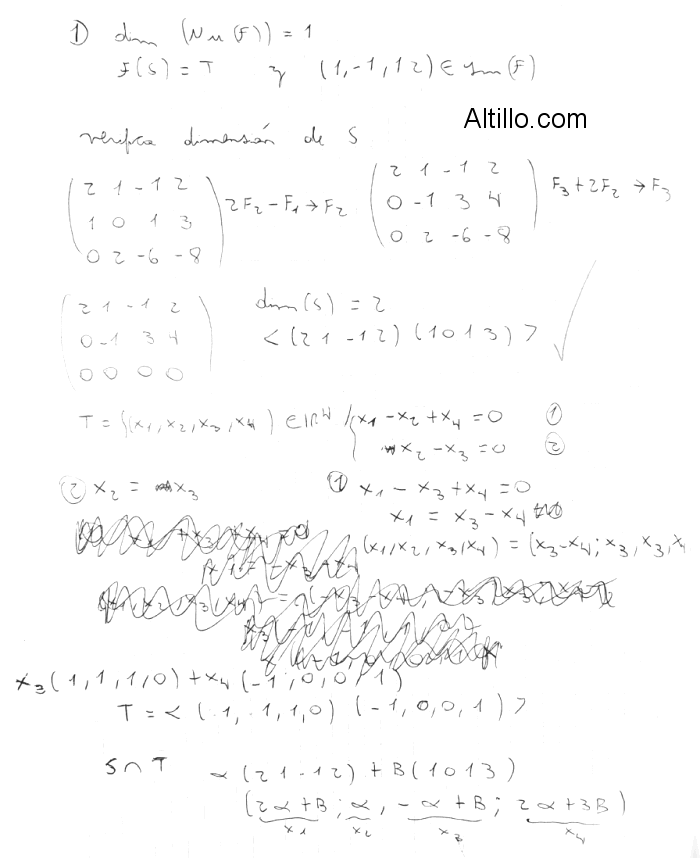 ① dim (Nu(F)) = 1
F(S) = T y (1,-1,1 2) ∈ Im(F)
Altillo.com
verifica dimensión de S
( 2 1 -1 2 ) ( 2 1 -1 2 )
( 1 0 1 3 ) 2F2 - F1 → F2 ( 0 -1 3 4 ) F3 + 2F2 → F3
( 0 2 -6 -8 ) ( 0 2 -6 -8 )
( 2 1 -1 2 ) dim(S) = 2
( 0 -1 3 4 ) < (2 1 -1 2) (1 0 1 3) >
( 0 0 0 0 )
T = {(x1, x2, x3, x4) ∈ IR4 / { x1 - x2 + x4 = 0 ①
x2 - x3 = 0 ②
② x2 = x3 ① x1 - x3 + x4 = 0
x1 = x3 - x4
(x1, x2, x3, x4) = (x3 - x4; x3, x3, x4
x3 (1, 1, 1, 0) + x4 (-1, 0, 0, 1)
T = < (1, 1, 1, 0) (-1, 0, 0, 1) >
S ∩ T α (2 1 -1 2) + B (1 0 1 3)
(2α + B; α, -α + B; 2α + 3B)
x1 x2 x3 x4